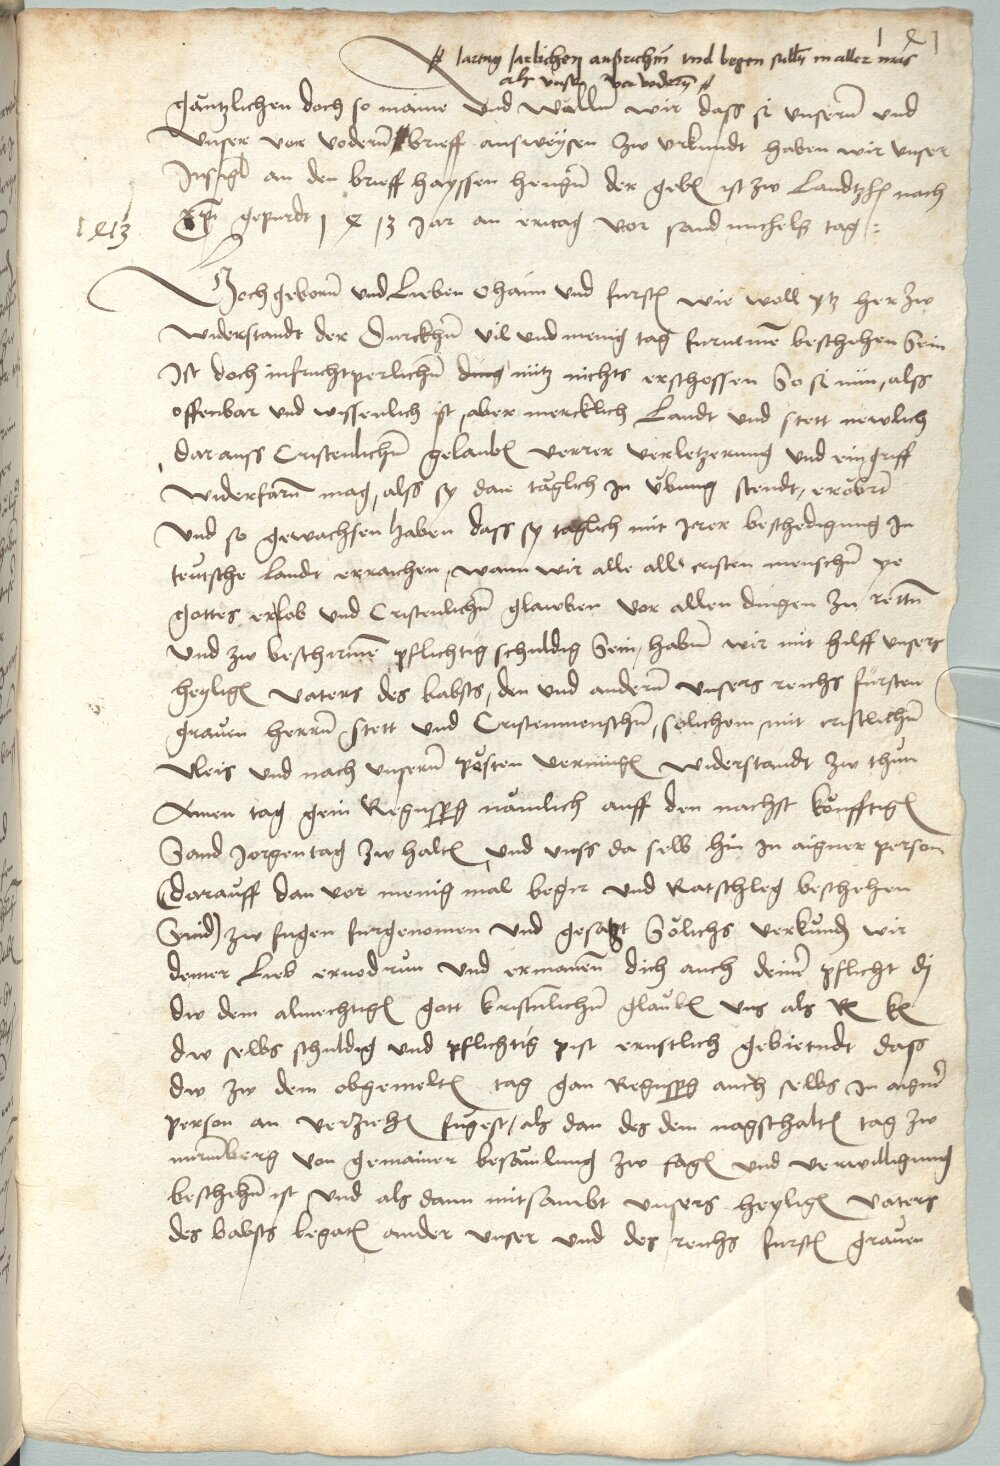 1 4 1
# Jartag Jarlichen außrichtn und begen sullen in aller mas
als unser vor vodern #
gäntzlichen doch so maine und wellen wir dass si unsern und
unser vor vodern # brieff ausweysen zw urkundt haben wir unser
Insigl an den brieff hayssen hengen der geben ist zw Landtzhuet nach
1413 Xpi gepurdt 1413 Jar an eritag vor sand michels tag :
Hochgeborn und Lieben Ohaim und fursten wie woll ytz her zw
widerstandt der Durckhen vil und menig tag furnemen beschehen Sein
Ist doch infruchtperlichen ding nütz nichts erschossen So si nün, alss
offenbar und wissenlich ist, aber mercklich Landt und stett newlich
dar auss Cristenlichen gelauben verrer verletzerung und eingriff
widerfaren mag, alss sy dan täglich in übung stendt, erobert
und so gewachsen haben dass sy täglich mit Jrer beschedigung in
teutsche landt erraichen, wann wir alle all cristen menschen ye
gottes erlob und Cristenlichen glawben vor allen dingen zu retten
und zw beschirmen pflichtig schuldig Sein, haben wir mit hilff unsers
heyligen vaters des babsts, den und andern unsers reichs fürsten
graven herrn stett und Cristenmenschen, solichem mit cristlichem
Vleis und nach unserm posten vermügen widerstandt zw thun
Ainen tag gein Regenspurg nämlich auff den nachst könfftigen
Sand Jorgen tag zw halten und unss da selb hin in aigner person
(darauff dan vor menig mal beger und Ratschleg beschehen
Sind) zw fugen furgenomen und gesatzt Sölichs verkunden wir
deiner Lieb ervodrun und ermanen dich auch deiner pflicht di
dw dem almechtigen gott kristenlichen glauben uns als R k
dw selbs schuldig und pflichtig pist ernstlich gebietundt dass
dw zw dem obgemelten tag gan Regenspurg auch selbs in aigner
person an verziehen fugest, als dan des dem nagschalten tag zw
nürmberg von gemainer besamlung zw sagen und verwilligung
beschehen ist und als dann mitsambt unsers heyligen vaters
des babsts legaten ander unser und des reichs fursten graven